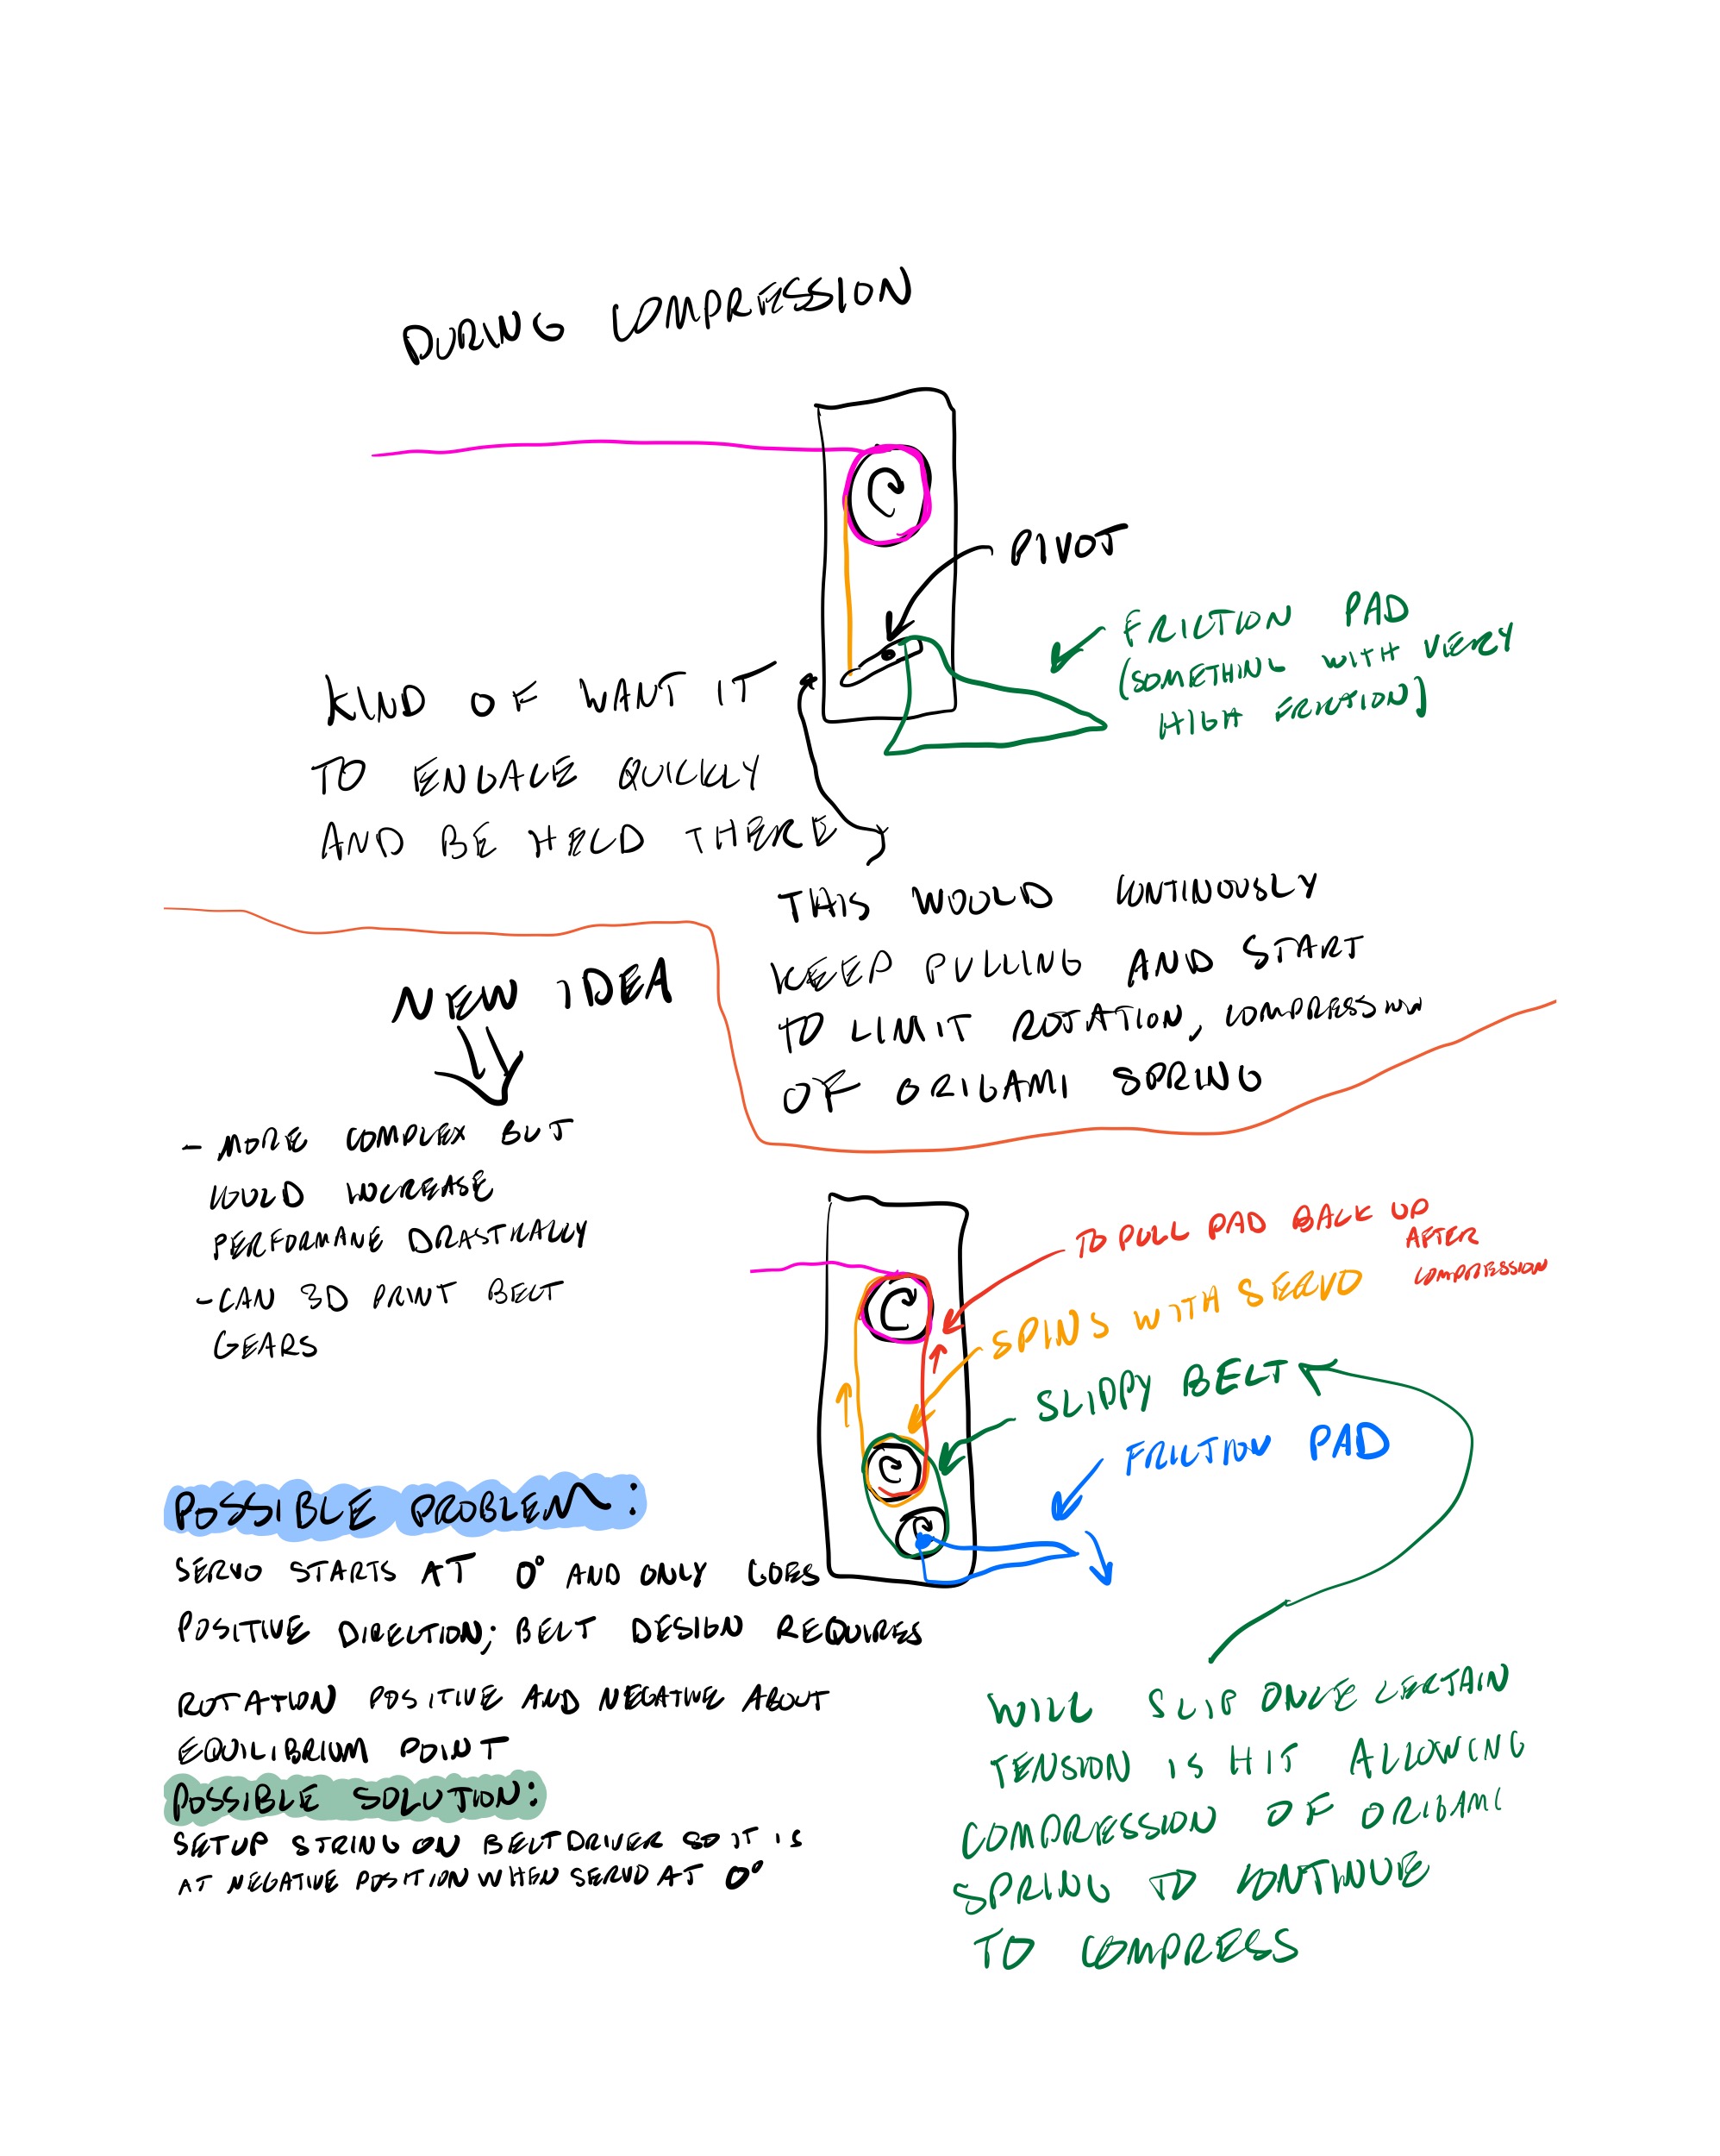 DURING COMPRESSION
PIVOT
FRICTION PAD
(SOMETHING WITH VERY
HIGH FRICTION)
KIND OF WANT IT
TO ENGAGE QUICKLY
AND BE HELD THERE
THIS WOULD CONTINOUSLY
KEEP PULLING AND START
TO LIMIT ROTATION, COMPRESSION
OF ORIGAMI SPRING
NEW IDEA
- MORE COMPLEX BUT
COULD INCREASE
PERFORMANE DRASTICALLY
- CAN 3D PRINT BELT
GEARS
TO PULL PAD BACK UP
AFTER
COMPRESSION
SPINS WITH SERVO
SLIPPY BELT
FRICTION PAD
POSSIBLE PROBLEM:
SERVO STARTS AT 0° AND ONLY GOES
POSITIVE DIRECTION; BELT DESIGN REQUIRES
ROTATION POSITIVE AND NEGATIVE ABOUT
EQUILIBRIUM POINT
POSSIBLE SOLUTION:
SETUP STRING ON BELT DRIVER SO IT IS
AT NEGATIVE POSITION WHEN SERVO AT 0°
WILL SLIP ONCE CERTAIN
TENSION IS HIT ALLOWING
COMPRESSION OF ORIGAMI
SPRING TO CONTINUE
TO COMPRESS